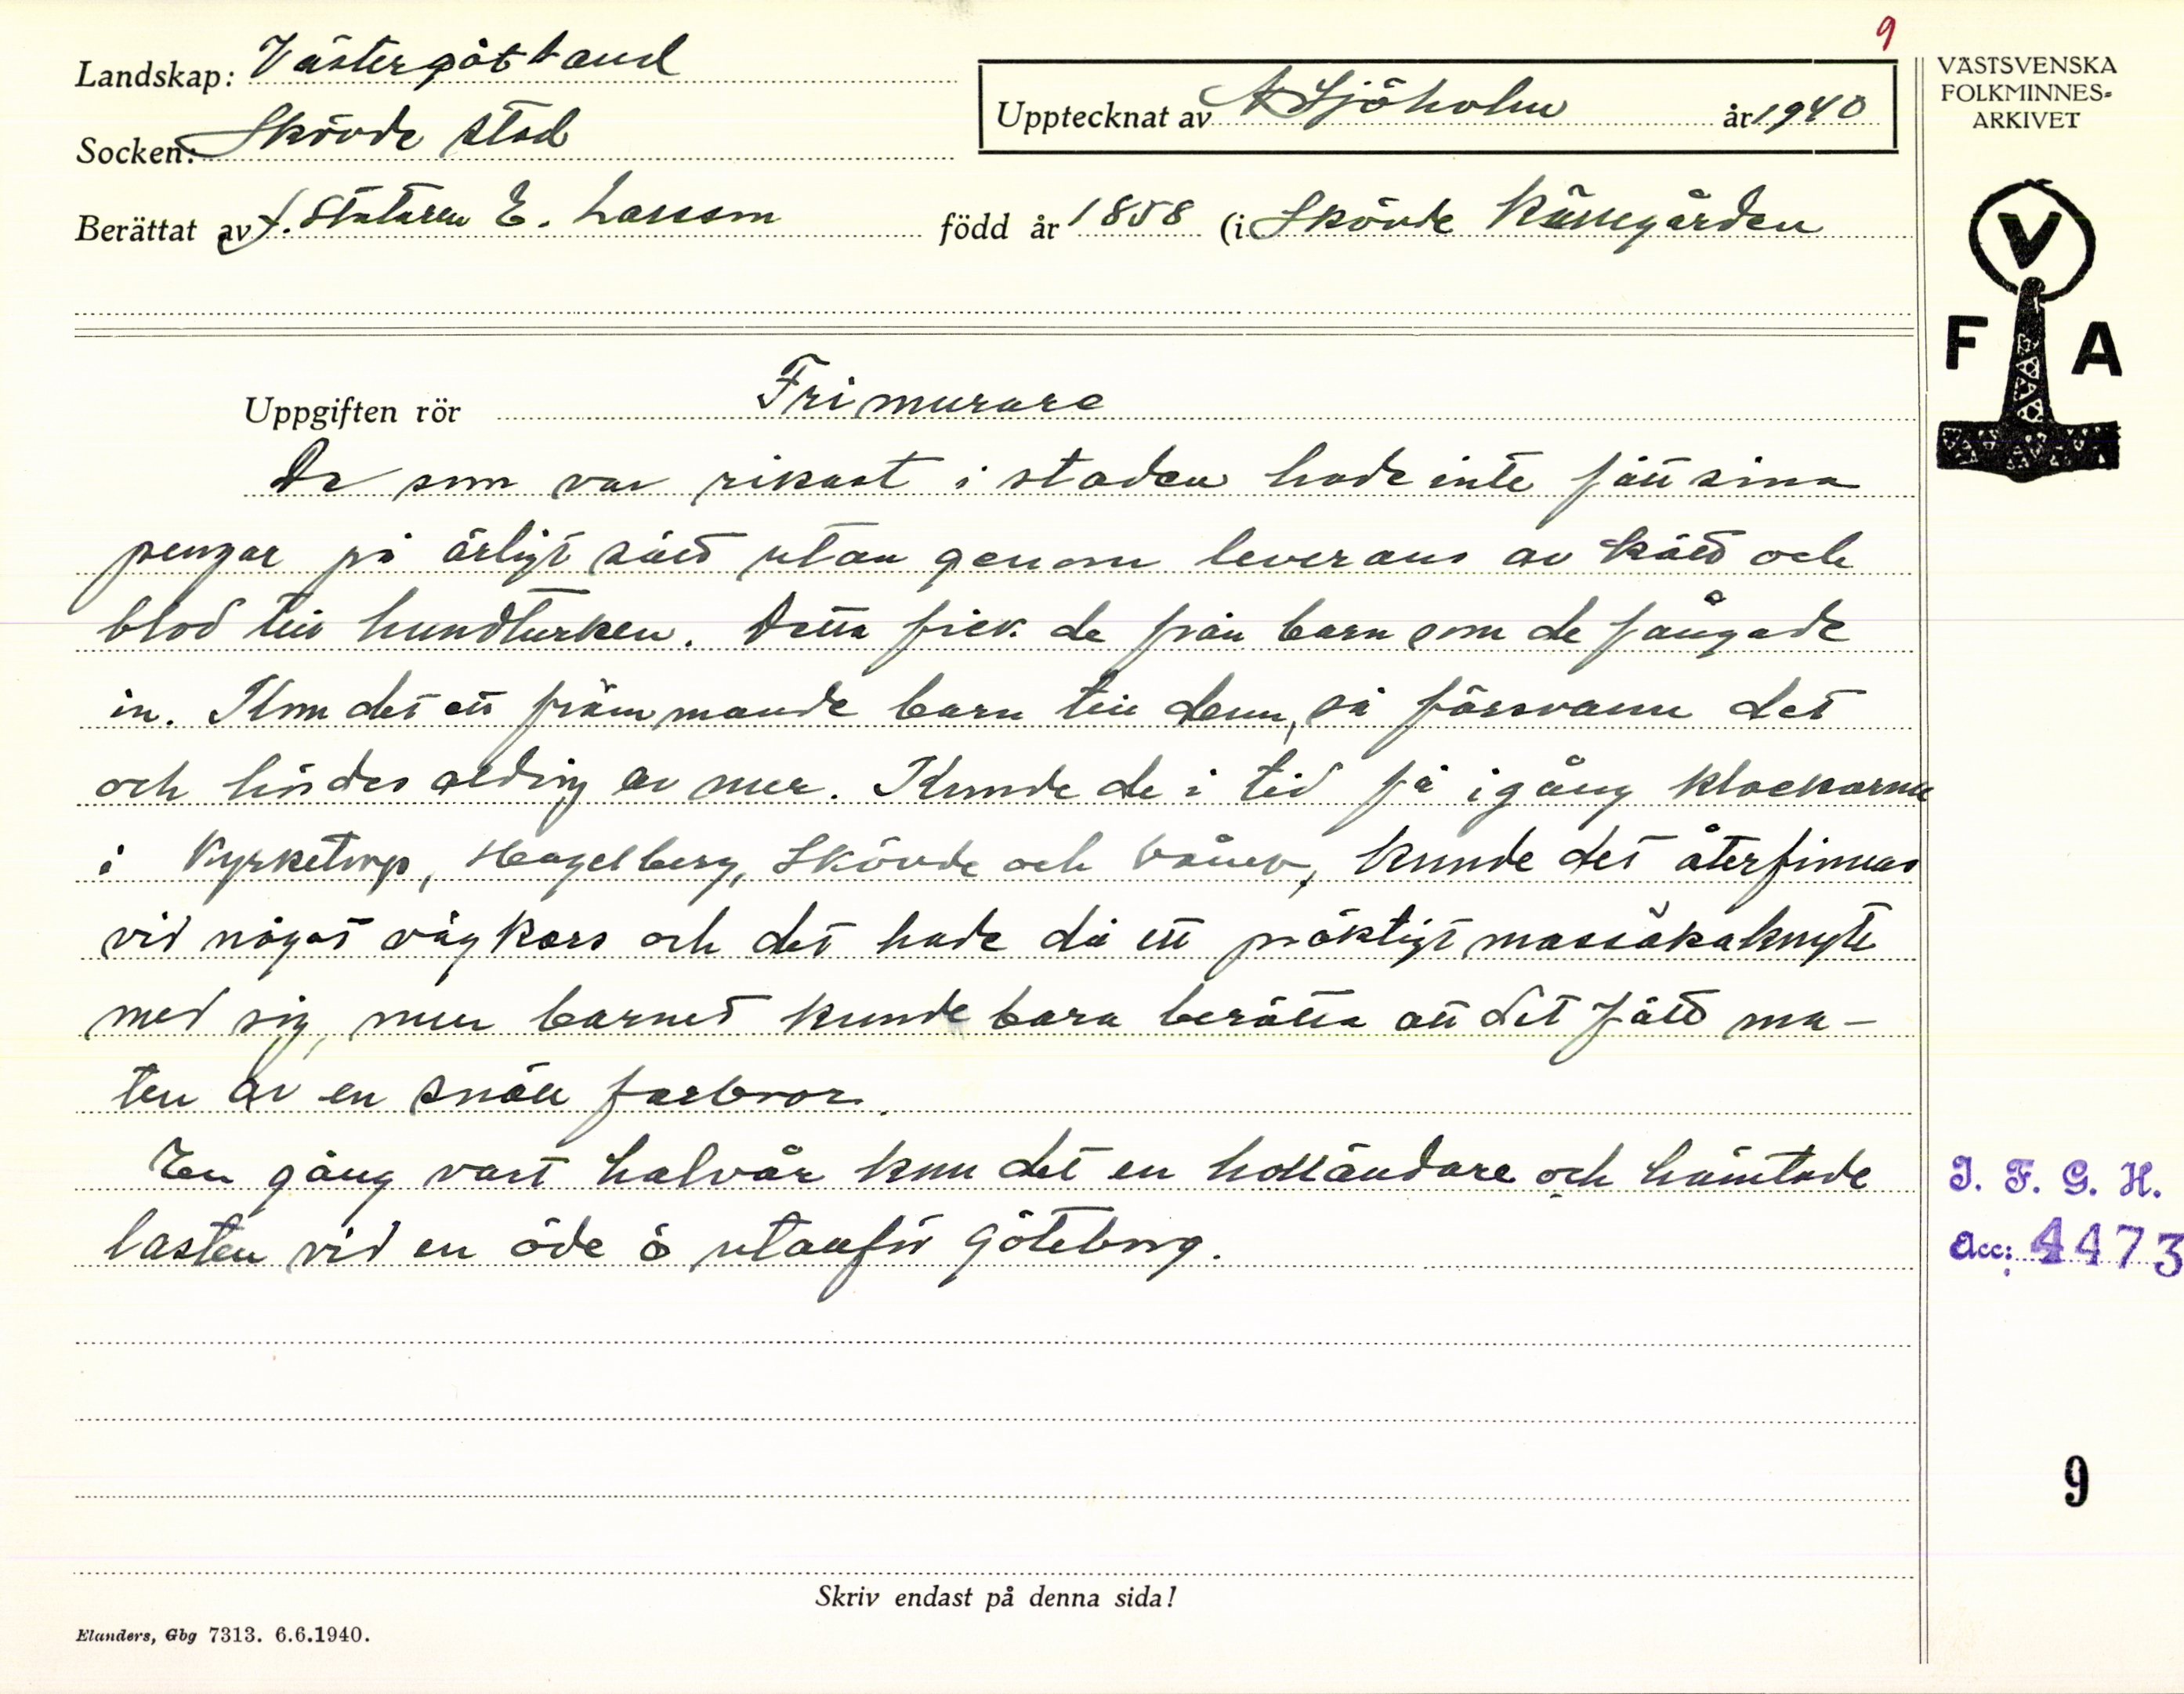 9
Landskap: Västergötland
Socken: Skövde stad
Upptecknat av A Sjöholm år 1940
Berättat av f. Stataren E. Larsson född år 1858 (i Skövde Käpplunda
VÄSTSVENSKA
FOLKMINNES=
ARKIVET
V
F A
Uppgiften rör Frimurare
De som var rikast i staden hade inte fått sina
pengar på ärligt sätt utan genom leverans av kött och
blod till hundturken. Detta fick de från barn som de fångade
in. Kom det ett främmande barn till dem, så försvann det
och hördes aldrig av mer. Kunde de i tid få igång klockorna
i Kyrketorp, Hagelberg, Skövde och Våmb, kunde det återfinnas
vid något vägkors och det hade då ett präktigt matsäksknyte
med sig, men barnet kunde bara berätta att det fått ma-
ten av en snäll farbror.
En gång vart halvår kom det en holländare och hämtade
lasten vid en öde ö utanför Göteborg.
I. F. G. H.
Acc: 4473
9
Skriv endast på denna sida!
Elanders, Gbg 7313. 6.6.1940.